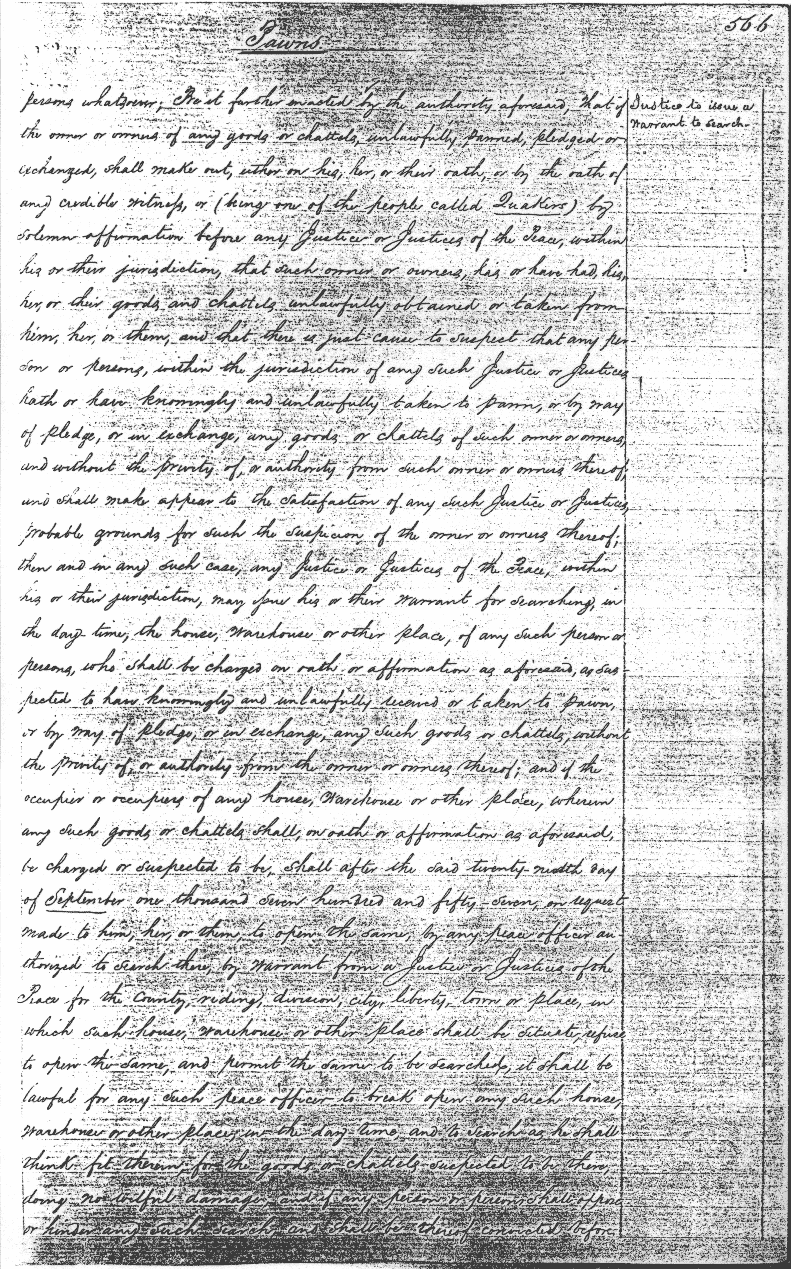 566
Pawns.
persons whatsoever; Be it further enacted by the authority aforesaid, that if
Justice to issue a
Warrant to search.
the owner or owners of any goods or chattels, unlawfully pawned, pledged or
exchanged, shall make out, either on his, her, or their oath, or by the oath of
any credible witness, or (being one of the people called Quakers) by
solemn affirmation before any Justice or Justices of the Peace, within
his or their jurisdiction, that such owner or owners, has or have had, his,
her, or their goods and chattels unlawfully obtained or taken from
him, her, or them, and that there is just cause to suspect that any per-
son or persons, within the jurisdiction of any such Justice or Justices
hath or have knowingly and unlawfully taken to pawn, or by way
of pledge, or in exchange, any goods or chattels of such owner or owners,
and without the privity of, or authority from such owner or owners thereof,
and shall make appear to the satisfaction of any such Justice or Justices,
probable grounds for such the suspicion of the owner or owners thereof;
then and in any such case, any Justice or Justices of the Peace, within
his or their jurisdiction, may issue his or their warrant for searching, in
the day time, the house, warehouse or other place, of any such person or
persons, who shall be charged on oath or affirmation as aforesaid, as sus-
pected to have knowingly and unlawfully received or taken to pawn,
or by way of pledge, or in exchange, any such goods or chattels, without
the privity of, or authority from the owner or owners thereof; and if the
occupier or occupiers of any house, warehouse or other place, wherein
any such goods or chattels shall, on oath or affirmation as aforesaid,
be charged or suspected to be, shall after the said twenty-ninth day
of September one thousand seven hundred and fifty-seven, on request
made to him, her, or them, to open the same, by any peace officer au-
thorized to search there, by warrant from a Justice or Justices of the
Peace for the county, riding, division, city, liberty, town or place, in
which such house, warehouse or other place shall be situate, refuse
to open the same, and permit the same to be searched, it shall be
lawful for any such peace officer to break open any such house,
warehouse or other place, in the day time, and to search as he shall
think fit therein for the goods or chattels suspected to be there,
doing no wilful damage; and if any person or persons shall oppose
or hinder any such search, and shall be thereof convicted before